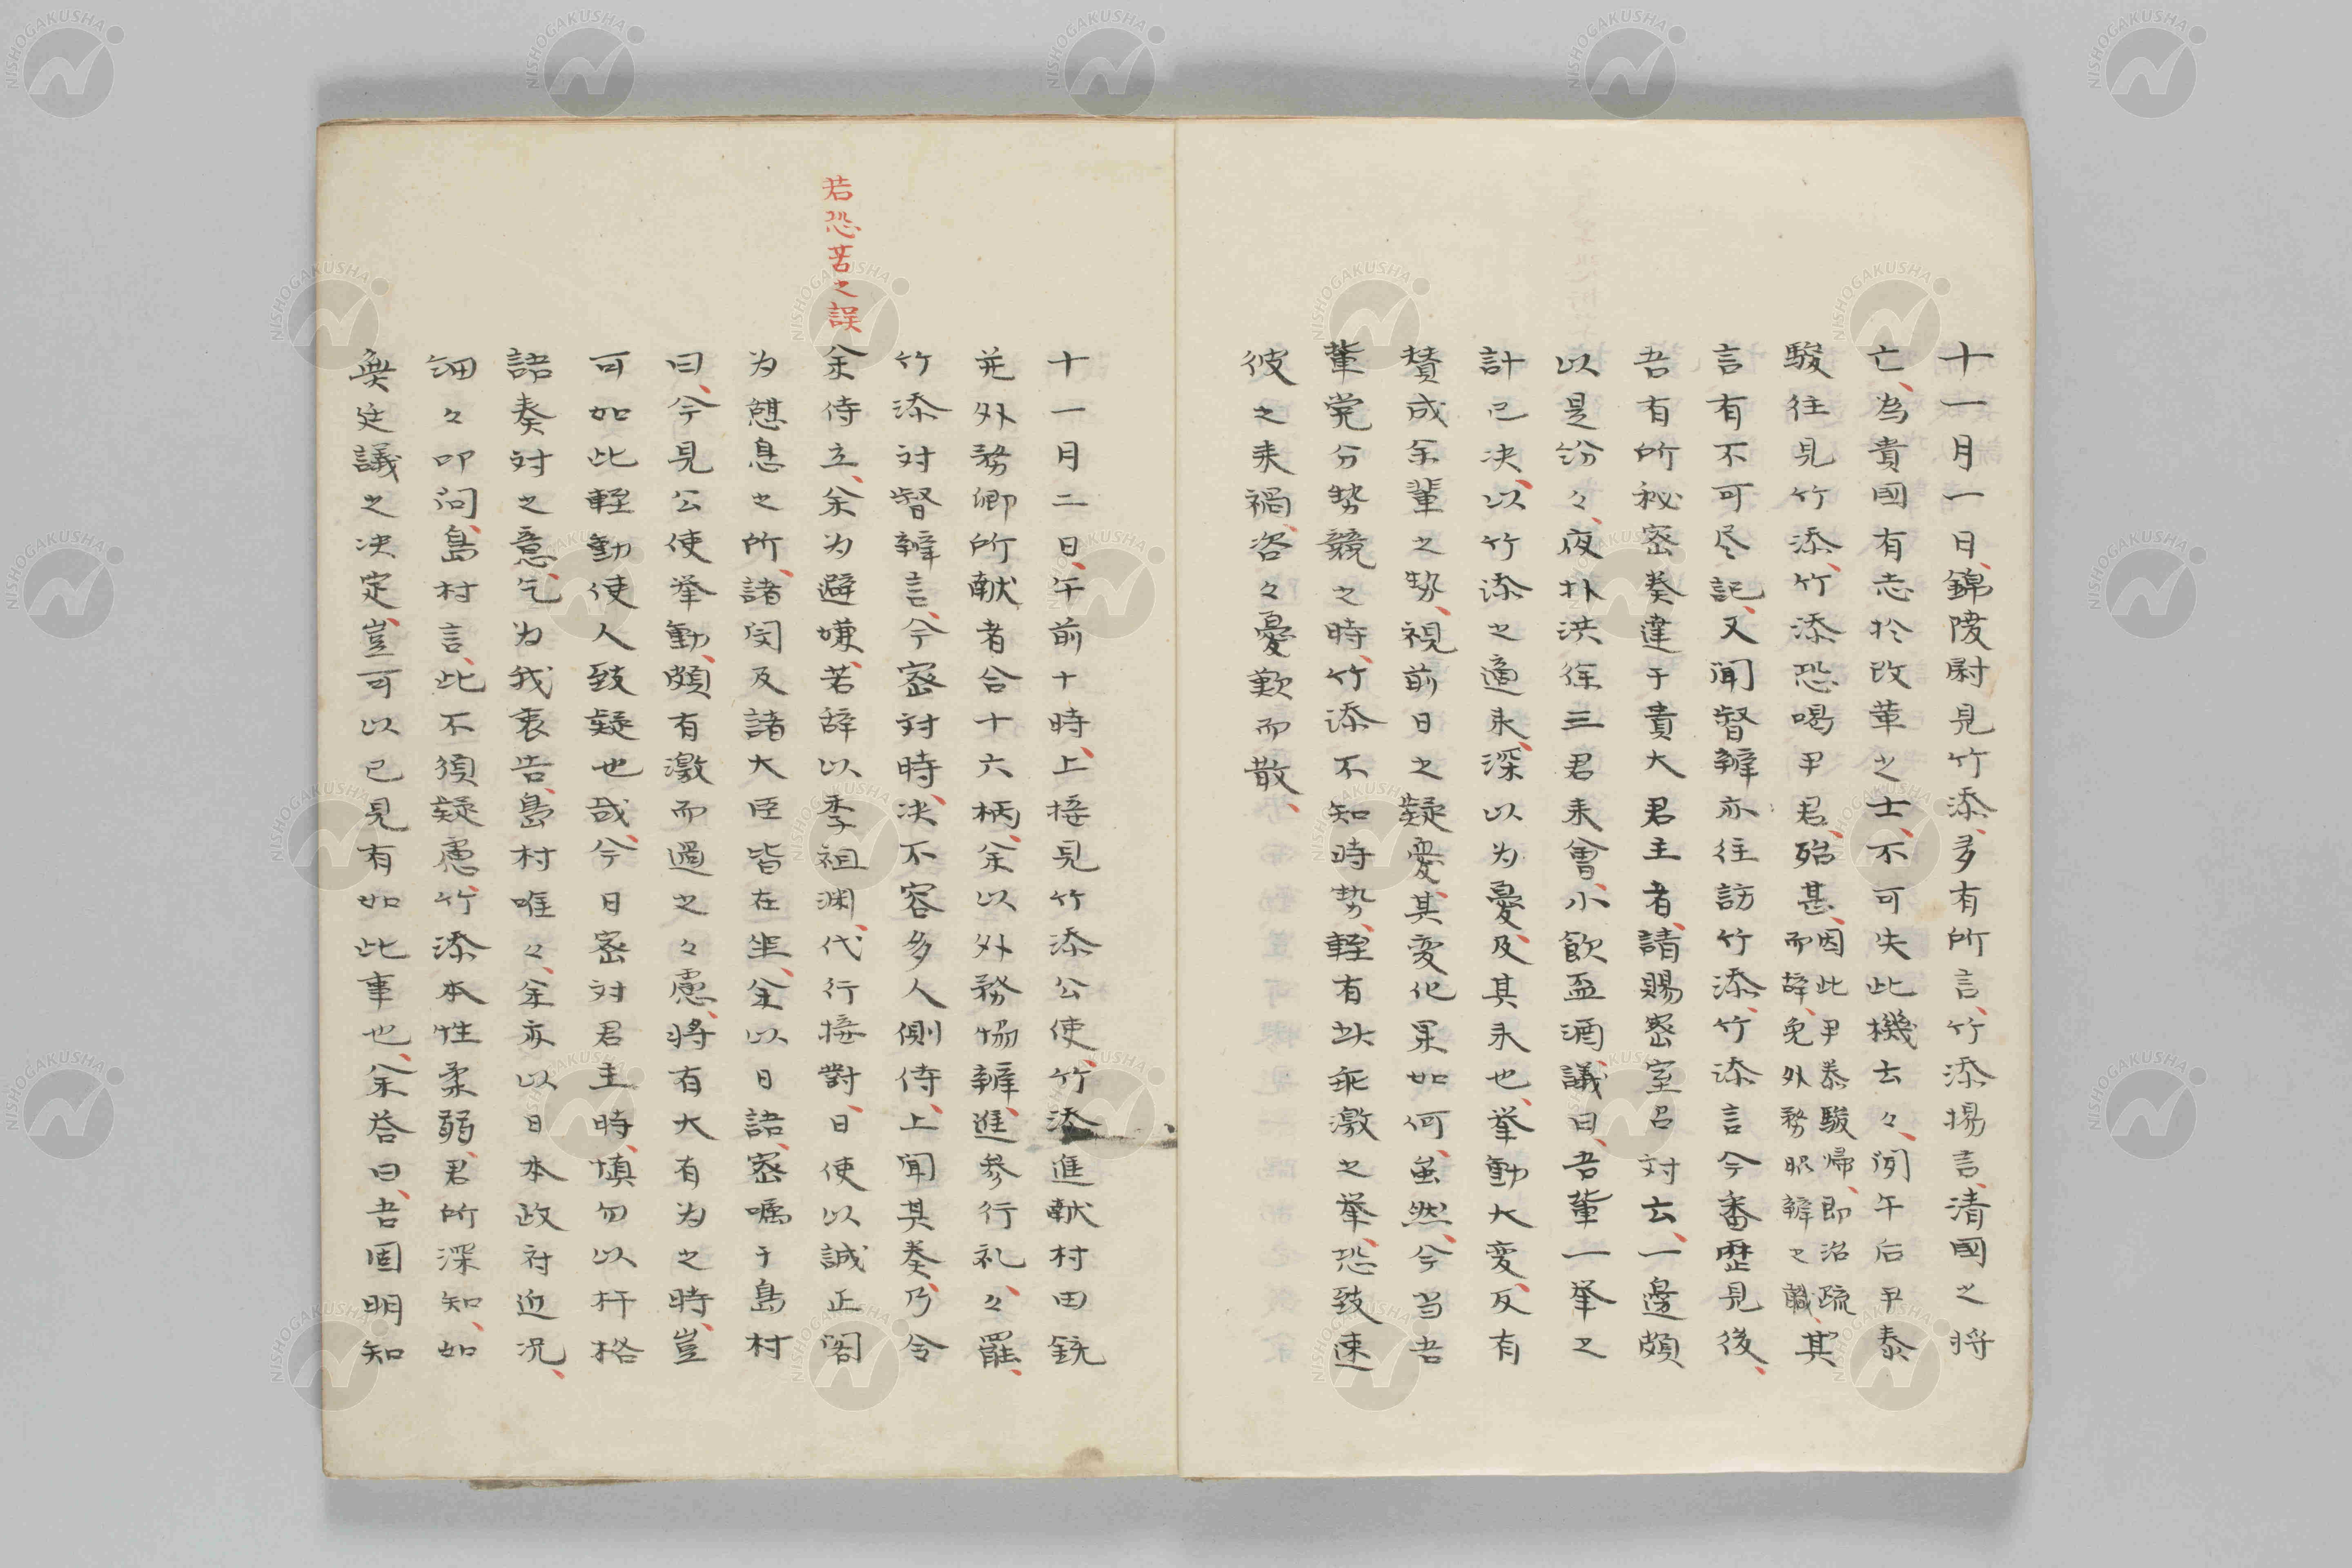 十一月一日、錦陵尉見竹添、多有所言、竹添揚言、清國之將
亡、為貴國有志於改革之士、不可失此機云々、閔午后尹泰
駿往見竹添、竹添恐喝尹君、殆甚、因此尹泰駿歸、即治疏而辞、免外務協辦之職、其
言有不可尽記、又聞督辦亦往訪竹添、竹添言今番歴見後、
吾有所秘密奏達于貴大君主者、請賜密室召対云、一邊頗
以是紛々、夜朴洪徐三君来會、小飲盃酒議曰、吾輩一挙之
計已决、以竹添之適来、深以为憂、及其来也、挙動大変、反有
賛成余輩之勢、視前日之疑憂、其変化果如何、虽然、今当吾
輩党分勢競之時、竹添不知時勢、輕有此乖激之挙、恐致速
彼之来禍、咨々憂歎而散、
十一月二日、午前十時、上接見竹添公使、竹添進献村田銃
并外務卿所献者合十六柄、余以外務協辦、進参行礼、々罷、
竹添対督辦言、今密対時、决不容多人側侍、上聞其奏、乃令
余侍立、余为避嫌、若辞以李祖渊、代行接對、日使以誠正閣
为憇息之所、諸閔及諸大臣皆在坐、余以日語、密嘱于島村
曰、今見公使挙動、頗有激而過之々慮、将有大有为之時、豈
可如此輕動使人致疑也哉、今日密対君主時、慎勿以扞格
語奏対之意、乞为我衷告、島村唯々、余亦以日本政府近况、
細々叩问、島村言、此不須疑慮、竹添本性柔弱、君所深知、如
無廷議之决定、豈可以已見有如此事也、余答曰、吾固明知
若恐苦之誤